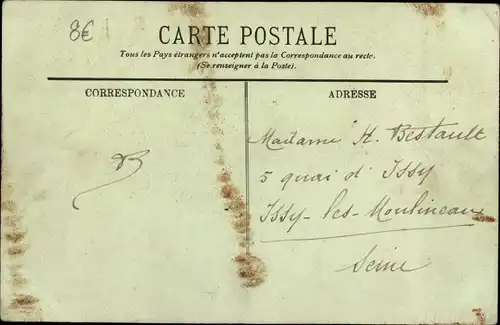 8€
CARTE POSTALE
Tous les Pays étrangers n'acceptent pas la Correspondance au recto.
(Se renseigner à la Poste).
CORRESPONDANCE
ADRESSE
Madame H. Bestault
5 quai d'Issy
Issy-les-Moulineaux
Seine